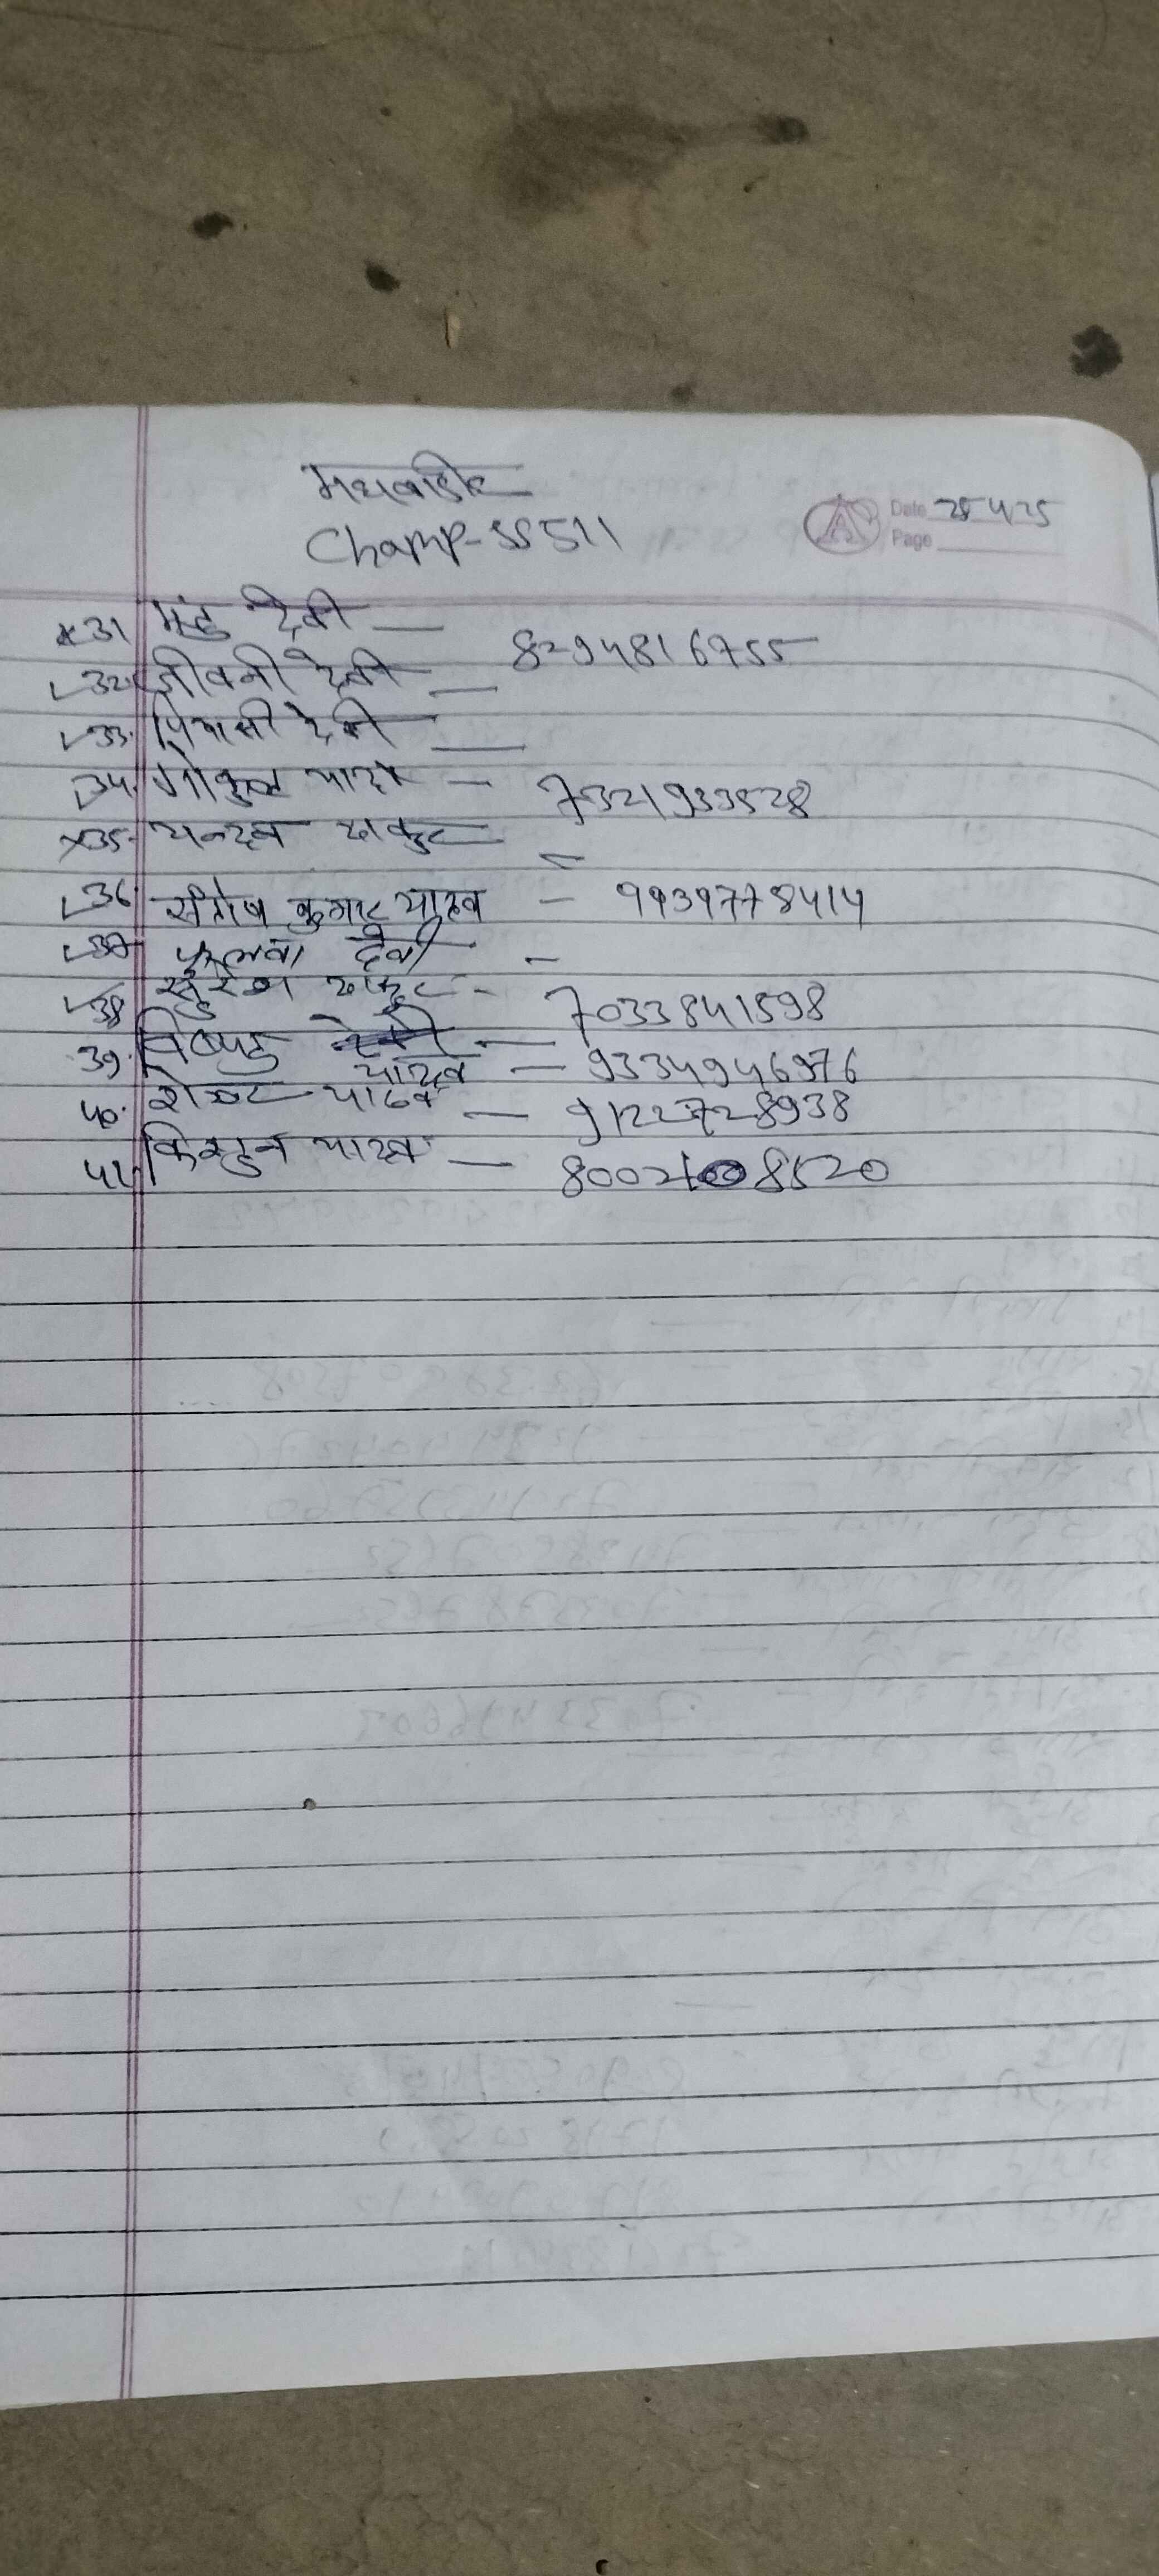 Champ-SS511
Date 25 4 25
Page
31 मंजु देवी — 8294816755
32 जीवनी देवी —
33. पियासी देवी —
34. गोकुल यादव — 7321933528
35- चन्दन ठाकुर —
36 संतोष कुमार यादव — 9939778414
37 फुलवा देवी —
38 सुरेश ठाकुर - 7033841598
39. यादव — 9334946976
40. शेखर यादव — 9122728938
41. किशुन यादव — 8002108520